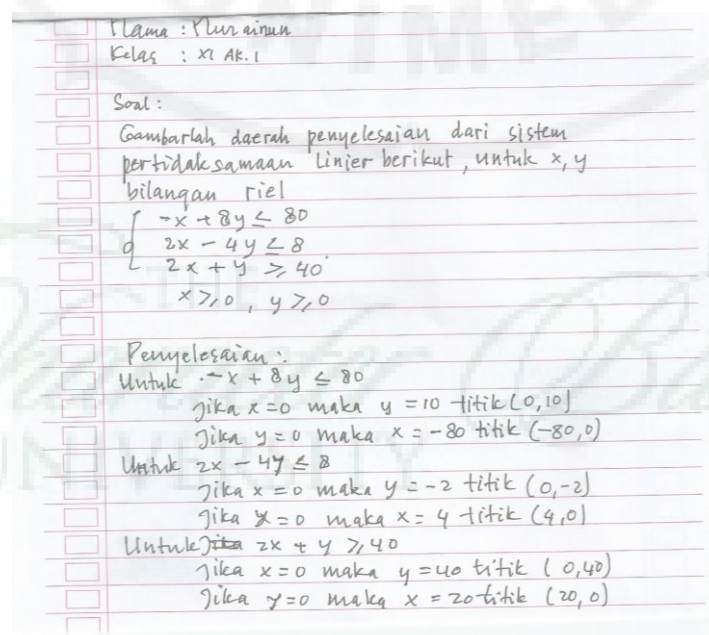 Nama : Nurainun
Kelas : XI AK.1
Soal :
Gambarlah daerah penyelesaian dari sistem
pertidaksamaan Linier berikut, untuk x, y
bilangan riel
-x + 8y ≤ 80
2x - 4y ≤ 8
2x + y ≥ 40
x ≥ 0, y ≥ 0
Penyelesaian :
Untuk -x + 8y ≤ 80
Jika x = 0 maka y = 10 titik (0,10)
Jika y = 0 maka x = -80 titik (-80,0)
Untuk 2x - 4y ≤ 8
Jika x = 0 maka y = -2 titik (0,-2)
Jika y = 0 maka x = 4 titik (4,0)
Untuk 2x + y ≥ 40
Jika x = 0 maka y = 40 titik (0,40)
Jika y = 0 maka x = 20 titik (20,0)
UNIVERSITY